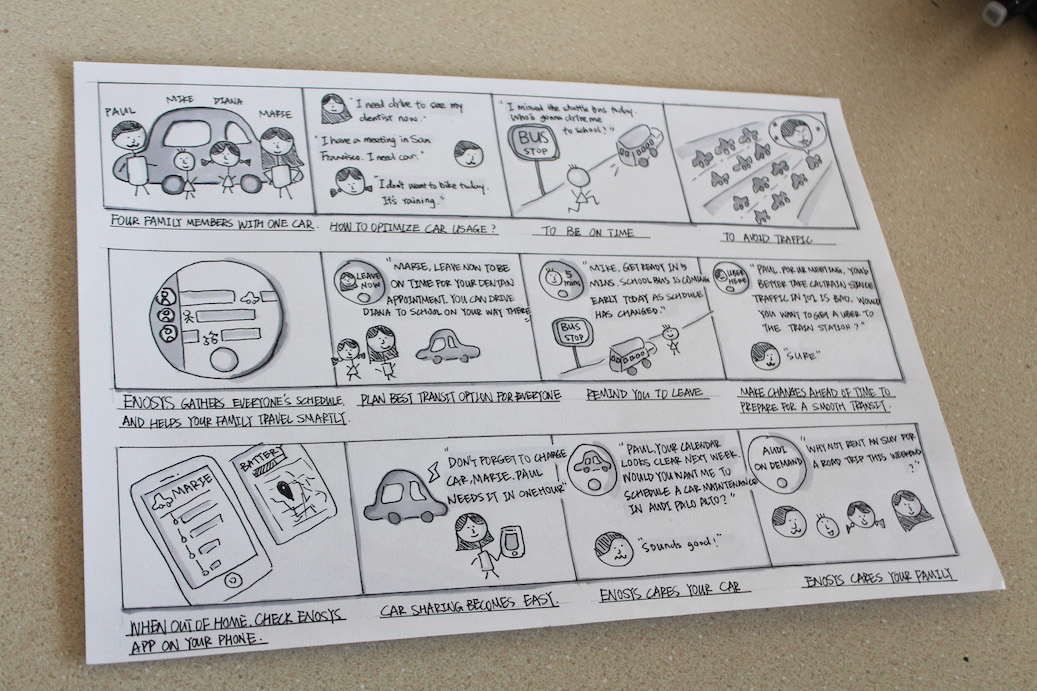 PAUL
MIKE
DIANA
MARIE
FOUR FAMILY MEMBERS WITH ONE CAR.
"I need drive to see my
dentist now."
"I have a meeting in San
Francisco. I need car."
"I don't want to bike today.
It's raining."
HOW TO OPTIMIZE CAR USAGE?
"I missed the shuttle bus today.
Who's gonna drive me
to school?"
BUS
STOP
TO BE ON TIME
TO AVOID TRAFFIC
ENOSYS GATHERS EVERYONE'S SCHEDULE,
AND HELPS YOUR FAMILY TRAVEL SMARTLY.
LEAVE
NOW
"MARIE, LEAVE NOW TO BE
ON TIME FOR YOUR DENTAL
APPOINTMENT. YOU CAN DRIVE
DIANA TO SCHOOL ON YOUR WAY THERE"
PLAN BEST TRANSIT OPTION FOR EVERYONE
5
mins
"MIKE, GET READY IN 5
MINS. SCHOOL BUS IS COMING
EARLY TODAY AS SCHDULE
HAS CHANGED."
BUS
STOP
REMIND YOU TO LEAVE
UBER
HERE
"PAUL, FOR UR MEETING, YOU'D
BETTER TAKE CALTRAIN, SINCE
TRAFFIC IN 101 IS BAD. WOULD
YOU WANT TO GET A UBER TO
THE TRAIN STATION?"
"SURE"
MAKE CHANGES AHEAD OF TIME TO
PREPARE FOR A SMOOTH TRANSIT.
MARIE
BATTERY
WHEN OUT OF HOME, CHECK ENOSYS
APP ON YOUR PHONE.
"DON'T FORGET TO CHARGE
CAR, MARIE. PAUL
NEEDS IT IN ONE HOUR"
CAR SHARING BECOMES EASY.
"PAUL, YOUR CALENDAR
LOOKS CLEAR NEXT WEEK.
WOULD YOU WANT ME TO
SCHEDULE A CAR MAINTENANCE
IN AUDI PALO ALTO?"
"Sounds good!"
ENOSYS CARES YOUR CAR
AUDI
ON DEMAND
"WHY NOT RENT AN SUV FOR
A ROAD TRIP THIS WEEKEND
?"
ENOSYS CARES YOUR FAMILY